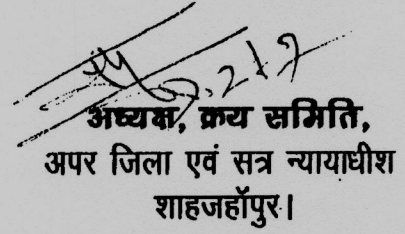 अध्यक्ष, क्रय समिति,
अपर जिला एवं सत्र न्यायाधीश
शाहजहॉपुर।